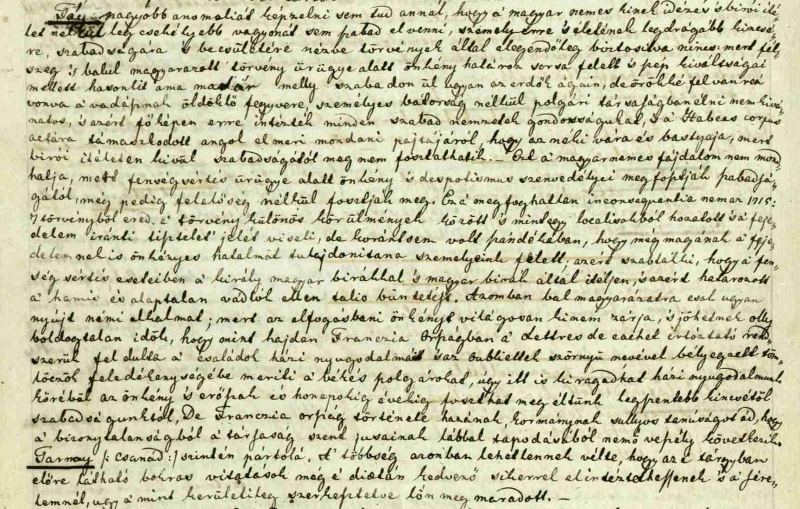 Fáy – nagyobb anomaliát képzelni sem tud annál, hogy a magyar nemes kinek idézés 's birói ité-
let nélkül legcsekélyebb vagyonát sem szabad elvenni, személyére 's életének legdrágább kincsé-
re, szabadságára 's becsületére nézve törvények által elegendőleg biztositva nincs; mert fél-
szeg 's balul magyarázott törvény ürügye alatt önkény határoz sorsa felett 's szép kiváltságai
mellett hasonlit ama madár melly szabadon ül ugyan az erdők ágain, de örökké fel van reá
vonva a vadásznak öldöklő fegyvere, személyes bátorság nélkül polgári társaságban élni nem kivá-
natos, 's azért főképen erre intézték minden szabad nemzetek gondosságukat, 's a Habeas corpus
actára támaszkodott angol el meri mondani pajtájáról, hogy az néki vára és bástyája, mert
birói itéleten kivül szabadságától meg nem fosztathatik. – Ezt a magyar nemes fájdalom nem mond-
hatja, mert fenségsértés ürügye alatt önkény 's despotismus szenvedélyei megfosztják szabadsá-
gától, még pedig felelőség nélkül fosztják meg. Ezen megfoghatlan inconsequentia nem az 1715:
7 törvényből ered, e' törvény különös körülmények között 's mintegy localisakból hozatott 's a feje-
delem iránti tisztelet jelét viseli, de korántsem volt szándékában, hogy még magának a feje-
delemnek is önkényes hatalmat tulajdonitana személyeink felett; azért szabta ki, hogy a fen-
ség sértés eseteiben a király magyar birákkal 's magyar birák által itéljen, 's azért határozott
a hamis és alaptalan vádlók ellen talio büntetést. Azomban bal magyarázatra csak ugyan
nyujt némi alkalmat; mert az elfogásbani önkényt világosan ki nem zárja, 's jöhetnek olly
boldogtalan idők, hogy mint hajdan Franczia Országban a' Lettres de cachet irtóztató rend-
szerük feldulta a családok házi nyugodalmát 's az oubliettek szörnyü nevével bélyegzett töm-
löcök feledékenységébe meriti a békés polgárokat, úgy itt is kiragadhat házi nyugodalmunk
köréből az önkény 's erőszak és hónapokig évekig foszthat meg éltünk legszentebb kincsétől
szabadságunktól, De Franczia ország története hazának, kormánynak sullyos tanúságot ád, hogy
a bizonytalanságból a társaság szent jusainak lábbal tapodásából nemő veszély következik.
Tarnay /: Csanád :/ szintén pártolá. A' többség azonban lehetlennek vélte, hogy az e' tárgyban
előre látható bokros vitatások még e' diætán kedvező sikerrel elintéztethessenek 's a sére-
lemnél, ugy a mint kerületileg szerkesztetve lőn meg maradott. –